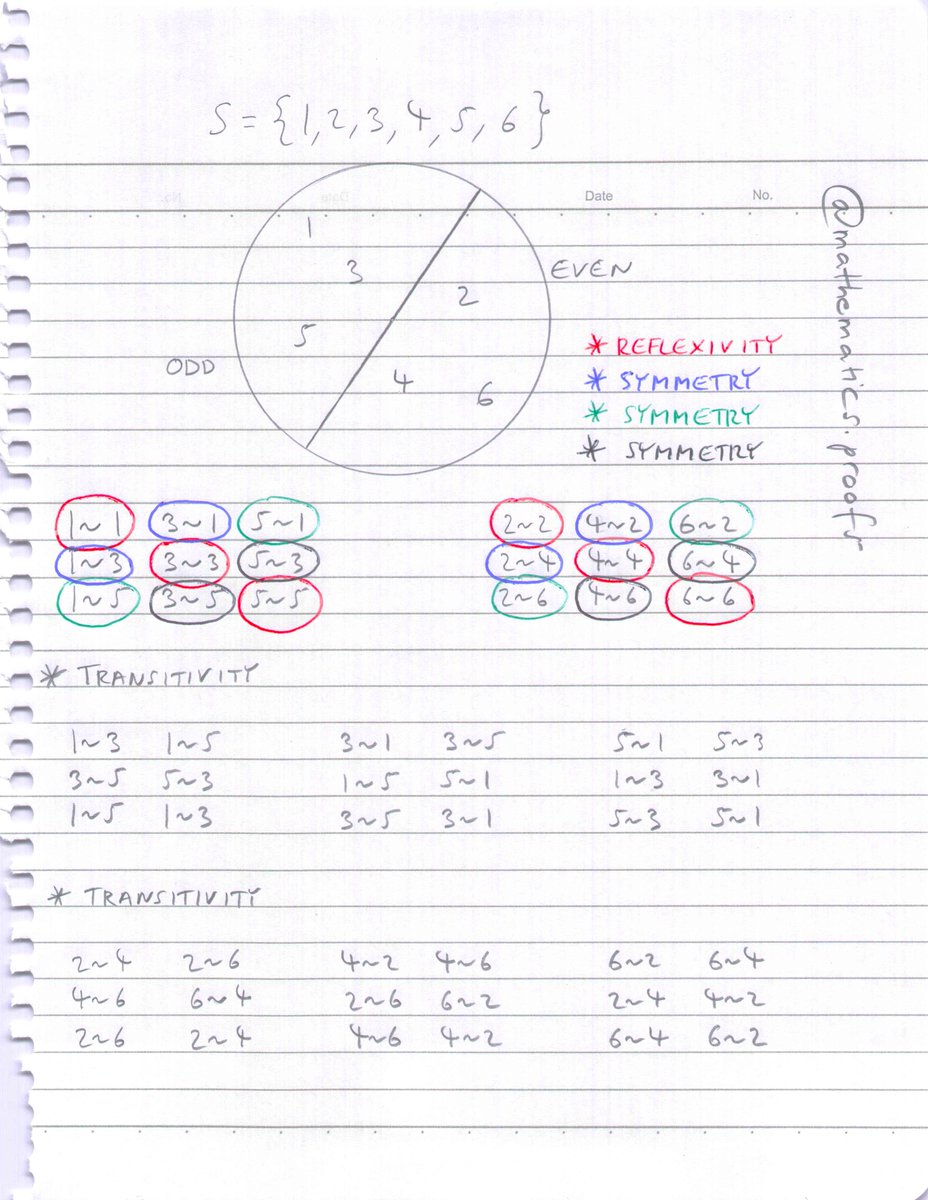 S = {1, 2, 3, 4, 5, 6}
Date No.
1
3
EVEN
2
5
ODD
4
6
* REFLEXIVITY
* SYMMETRY
* SYMMETRY
* SYMMETRY
@mathematics.proofs
1~1 3~1 5~1 2~2 4~2 6~2
1~3 3~3 5~3 2~4 4~4 6~4
1~5 3~5 5~5 2~6 4~6 6~6
* TRANSITIVITY
1~3 1~5 3~1 3~5 5~1 5~3
3~5 5~3 1~5 5~1 1~3 3~1
1~5 1~3 3~5 3~1 5~3 5~1
* TRANSITIVITY
2~4 2~6 4~2 4~6 6~2 6~4
4~6 6~4 2~6 6~2 2~4 4~2
2~6 2~4 4~6 4~2 6~4 6~2